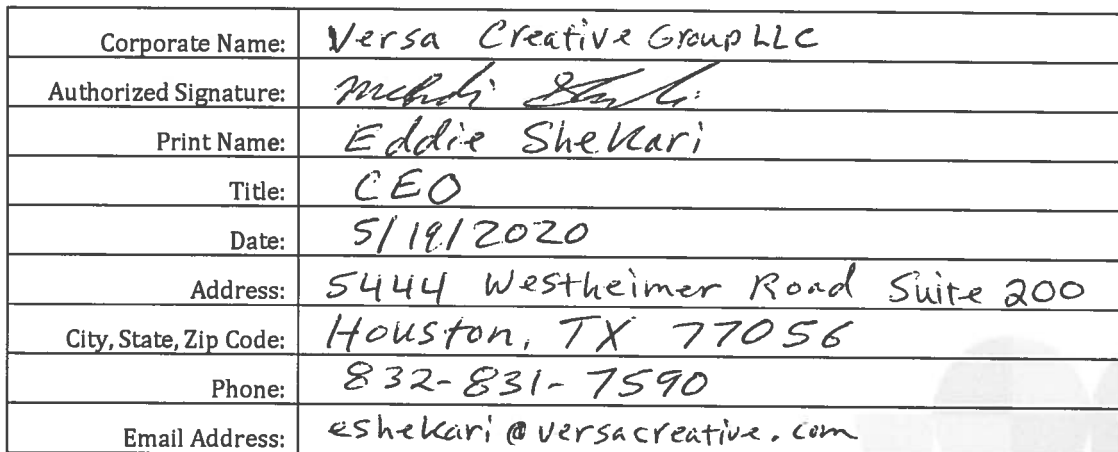 Corporate Name: Versa Creative Group LLC
Authorized Signature: Mehdi
Print Name: Eddie Shekari
Title: CEO
Date: 5/19/2020
Address: 5444 Westheimer Road Suite 200
City, State, Zip Code: Houston, TX 77056
Phone: 832-831-7590
Email Address: eshekari@versacreative.com